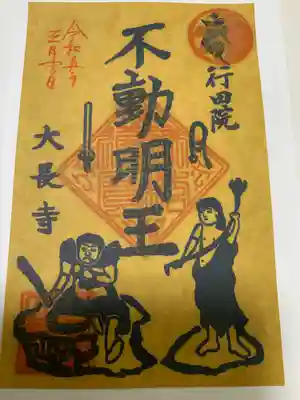 行田院
不動明王
大長寺
令和五年
三月二十日